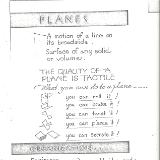 PLANES
A motion of a line on
its broadside.
Surface of any solid
or volume.
THE QUALITY OF A
PLANE IS TACTILE
What you can do to a plane.....
you can roll it!
you can
you can twist it!
you can
you can